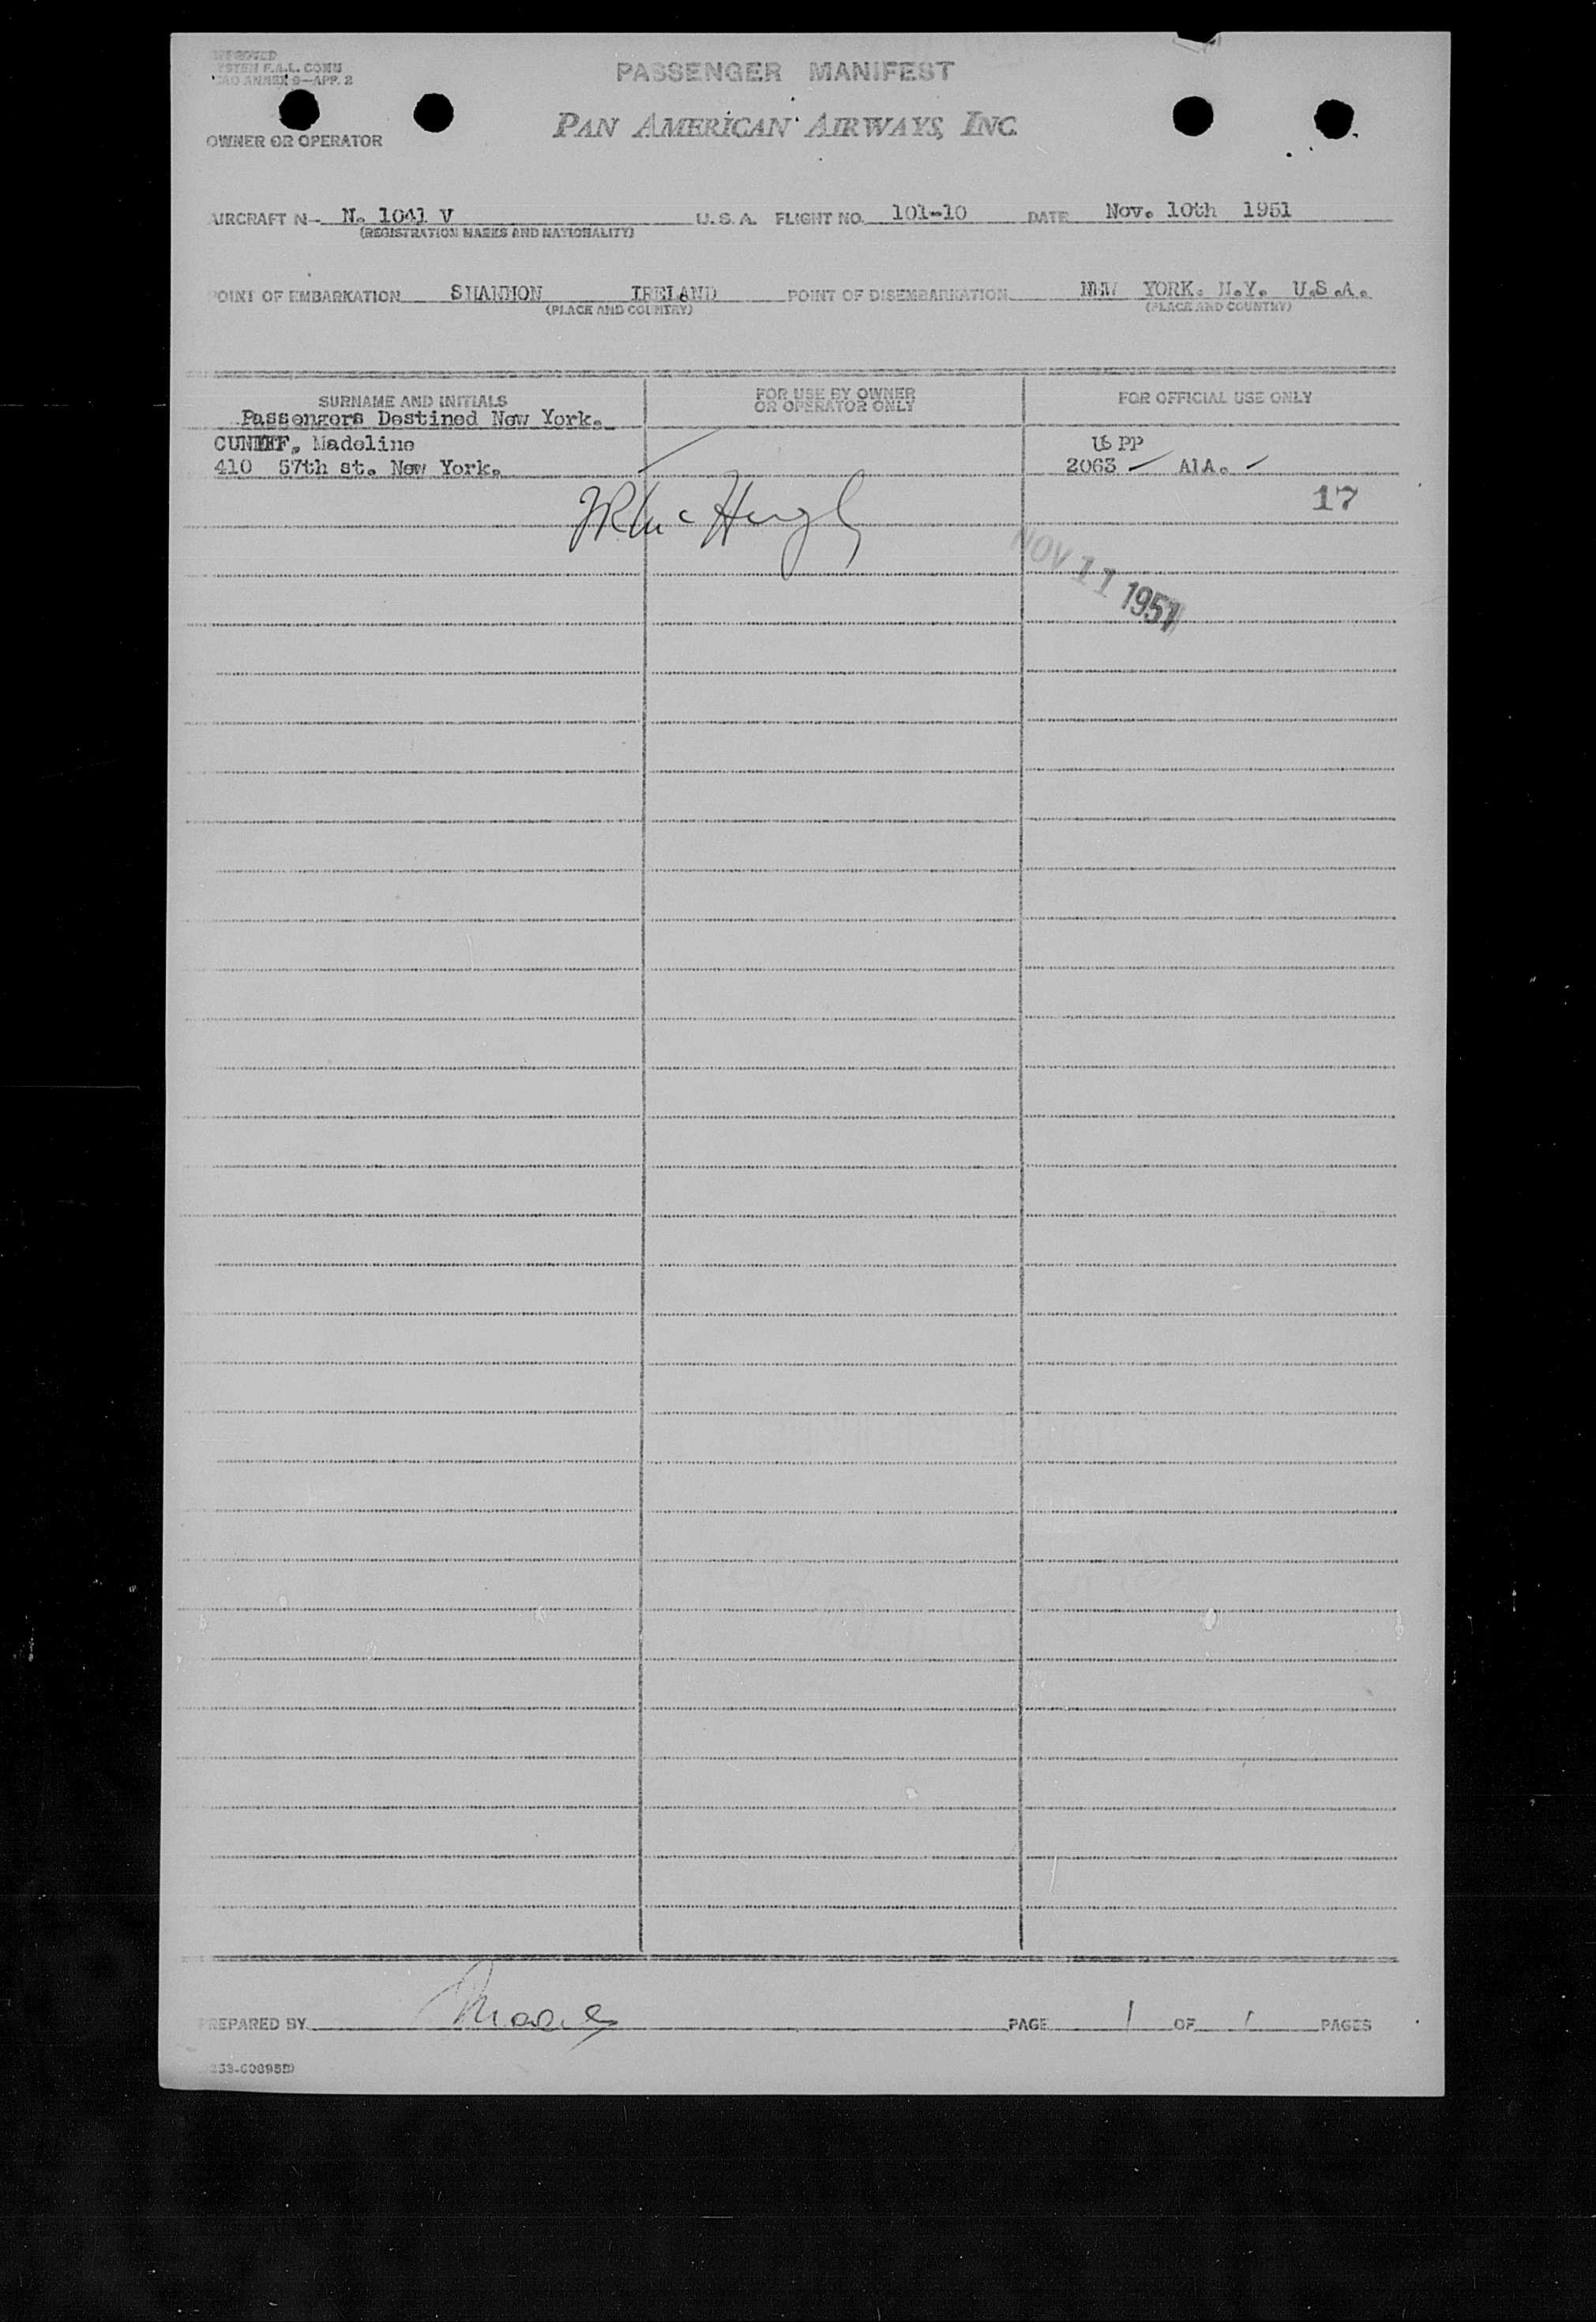 PASSENGER MANIFEST
PAN AMERICAN AIRWAYS, INC.
OWNER OR OPERATOR
AIRCRAFT N- N. 1041 V U. S. A. FLIGHT NO. 101-10 DATE Nov. 10th 1951
(REGISTRATION MARKS AND NATIONALITY)
POINT OF EMBARKATION SHANNON IRELAND POINT OF DISEMBARKATION NEW YORK. N.Y. U.S.A.
(PLACE AND COUNTRY) (PLACE AND COUNTRY)
SURNAME AND INITIALS FOR USE BY OWNER OR OPERATOR ONLY FOR OFFICIAL USE ONLY
Passengers Destined New York.
Madeline US PP
410 57th st. New York. 2063 A1A.
17
McHugh
NOV 11 1951
PREPARED BY PAGE 1 OF 1 PAGES